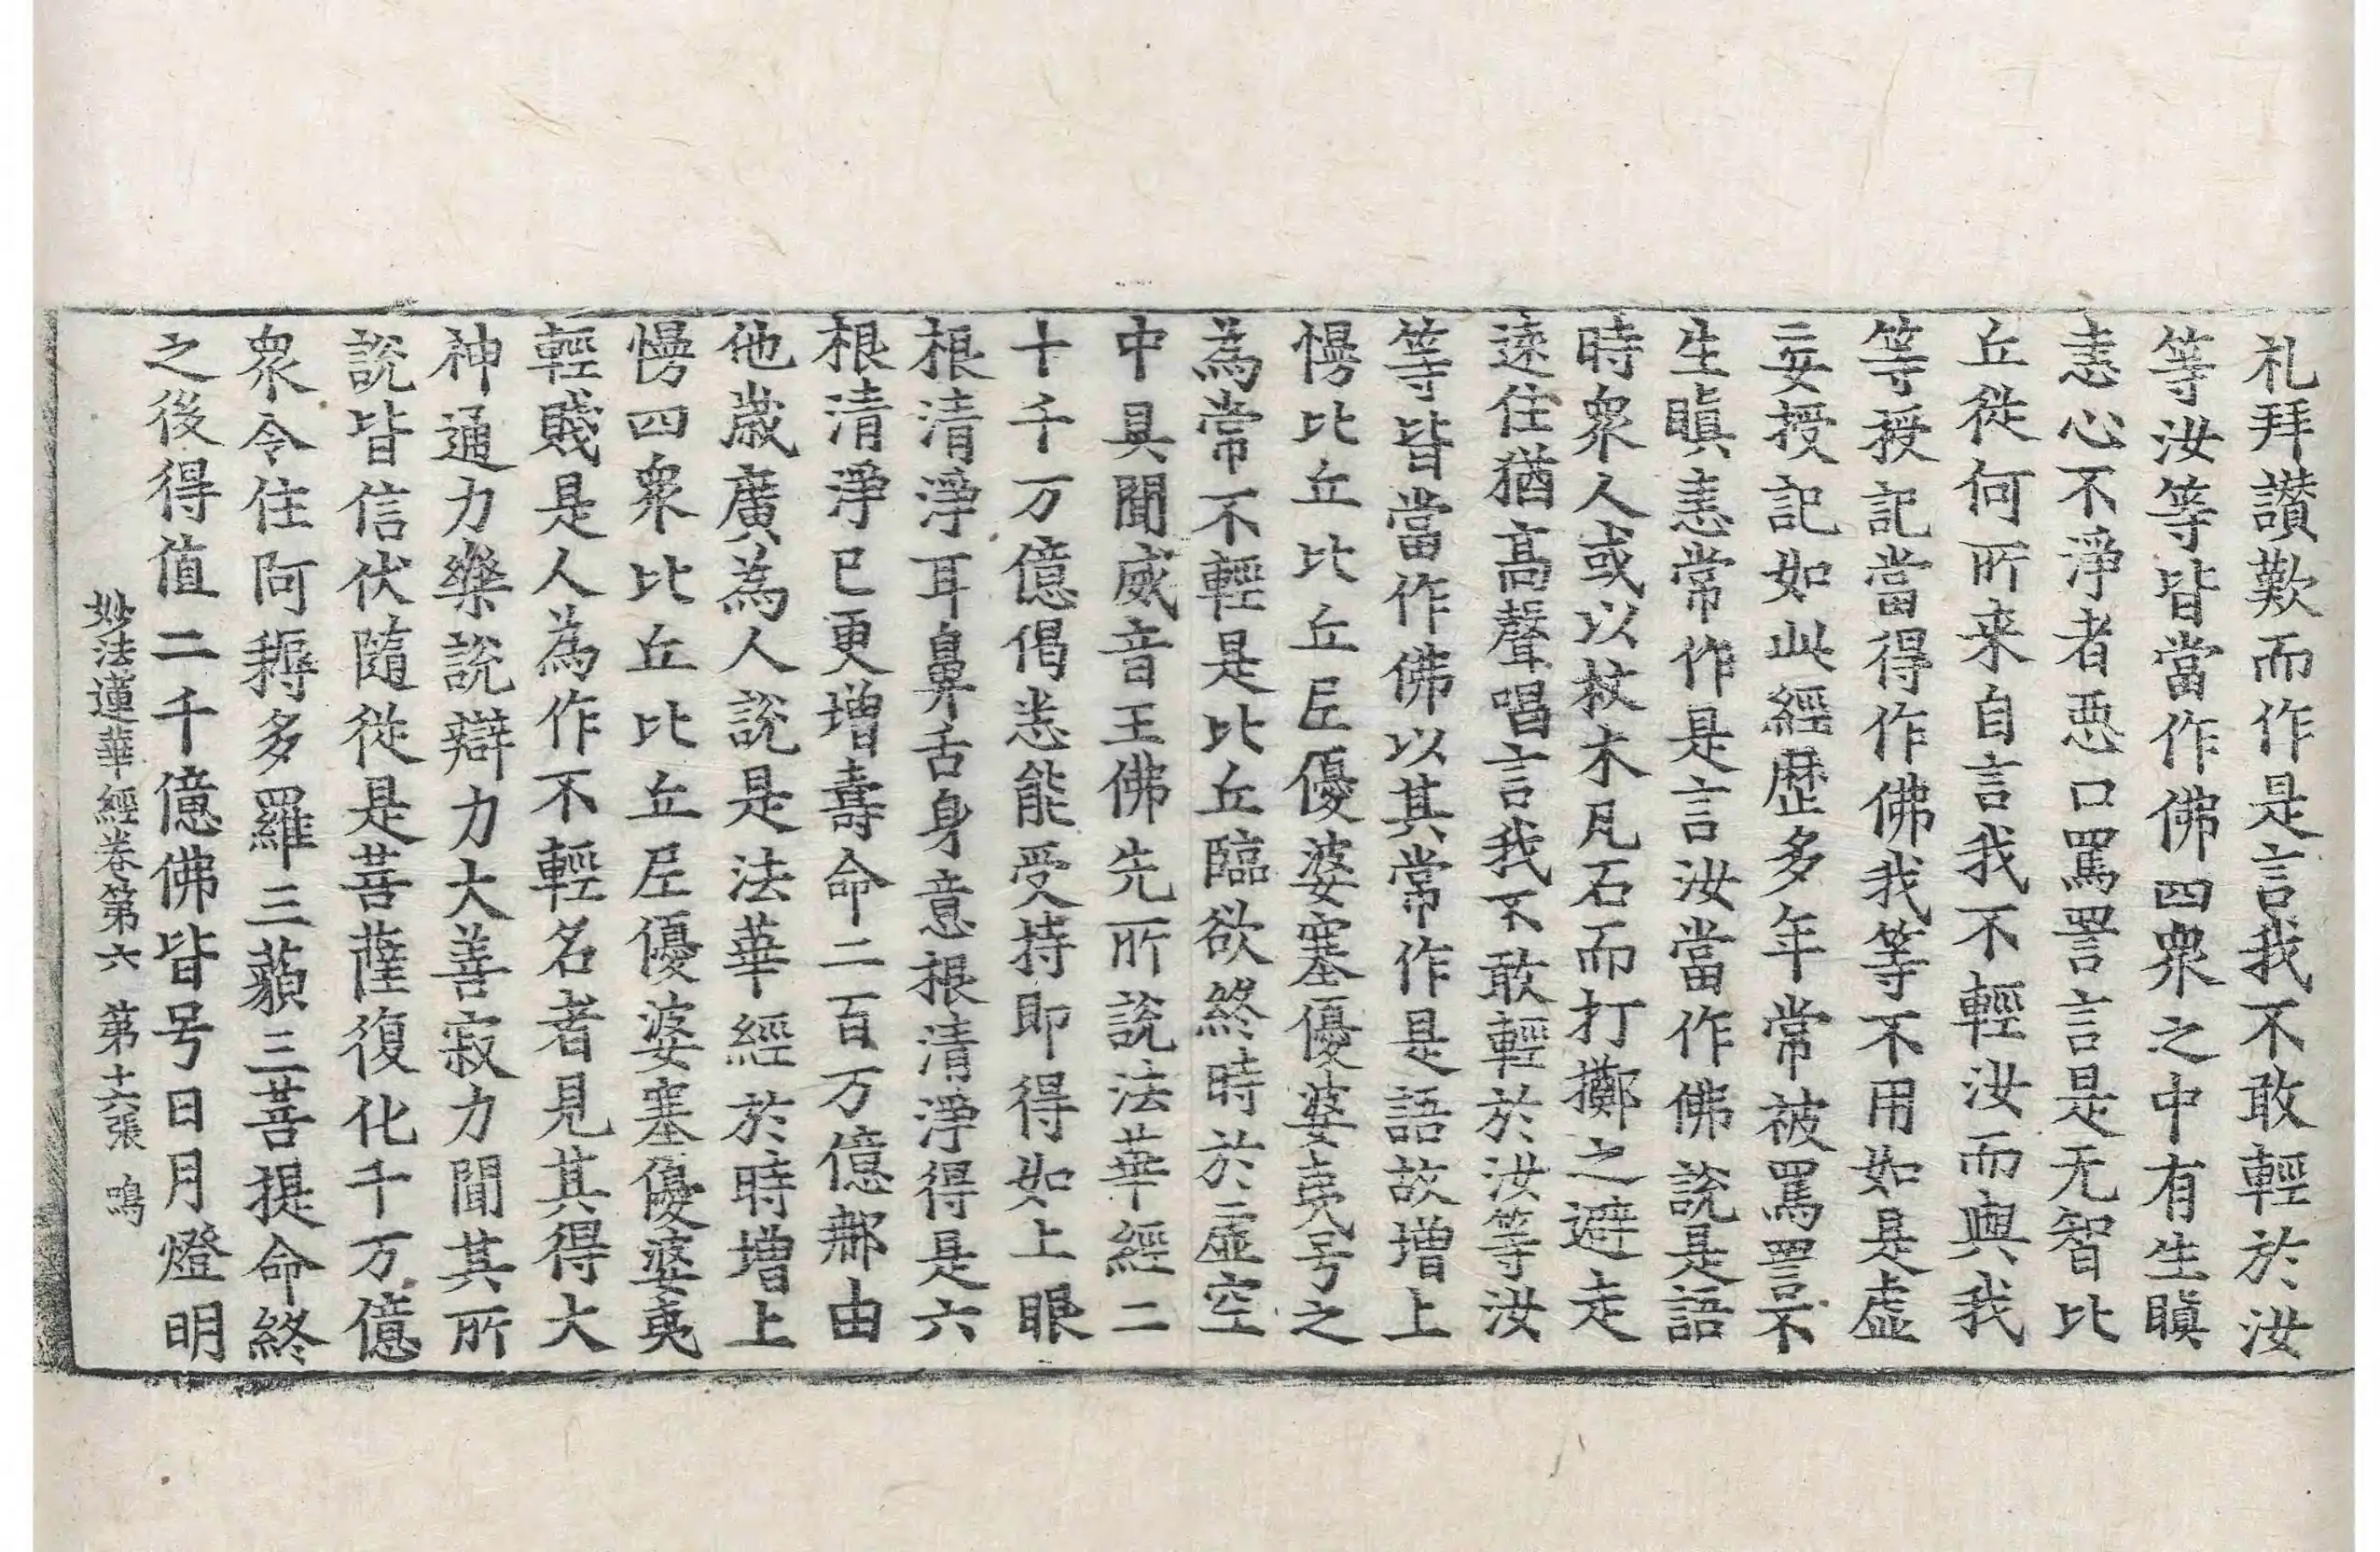 礼拜讃歎而作是言我不敢輕於汝
等汝等皆當作佛四衆之中有生瞋
恚心不淨者惡口罵詈言是无智比
丘從何所来自言我不輕汝而與我
等授記當得作佛我等不用如是虛
妄授記如此經歷多年常被罵詈不
生瞋恚常作是言汝當作佛說是語
時衆人或以杖木瓦石而打擲之避走
遠住猶高聲唱言我不敢輕於汝等汝
等皆當作佛以其常作是語故增上
慢比丘比丘尼優婆塞優婆夷号之
為常不輕是比丘臨欲終時於虛空
中具聞威音王佛先所說法華經二
十千万億偈悉能受持即得如上眼
根清淨耳鼻舌身意根清淨得是六
根清淨已更增壽命二百万億那由
他歲廣為人說是法華經於時增上
慢四衆比丘比丘尼優婆塞優婆夷
輕賤是人為作不輕名者見其得大
神通力樂說辯力大善寂力聞其所
說皆信伏隨從是菩薩復化千万億
衆令住阿耨多羅三藐三菩提命終
之後得值二千億佛皆号日月燈明
妙法蓮華經卷第六 第十六張 鳴